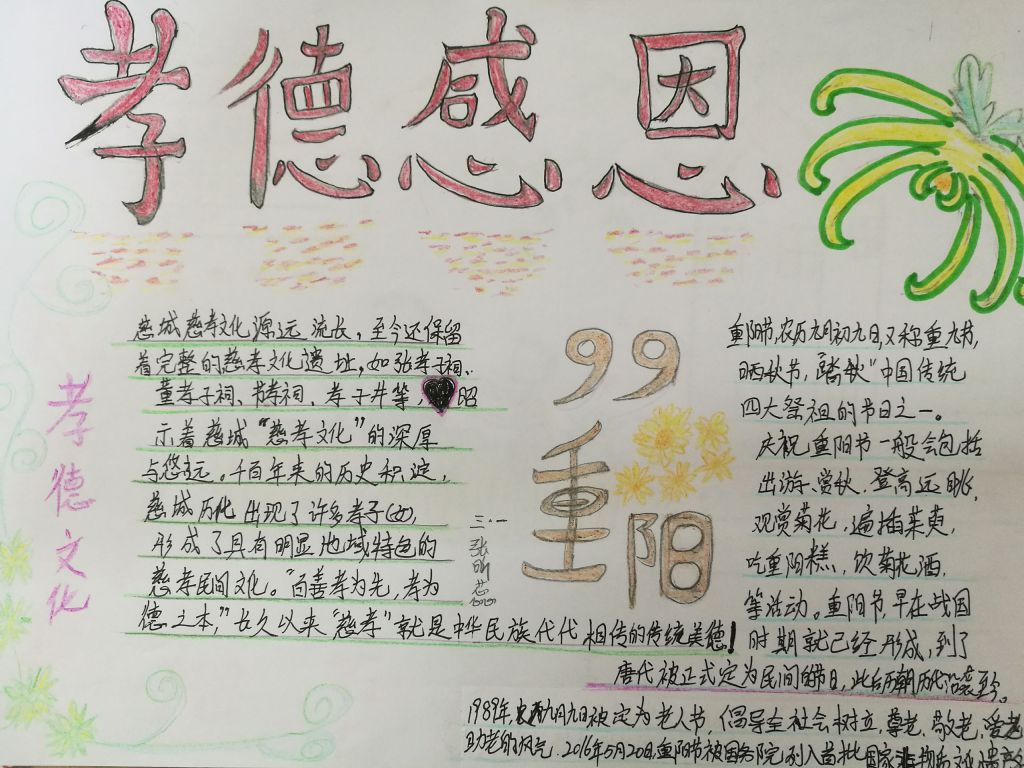 孝德感恩
孝德文化
慈城慈孝文化源远流长，至今还保留
着完整的慈孝文化遗址，如张孝子祠、
董孝子祠、节孝祠、孝子井等，昭
示着慈城“慈孝文化”的深厚
与悠远。千百年来的历史积淀，
慈城历化出现了许多孝子
形成了具有明显地域特色的
慈孝民间文化。“百善孝为先，孝为
德之本，”长久以来“慈孝”就是中华民族代代相传的传统美德！
三.一
99
重阳
重阳节，农历九月初九日，又称重九节，
晒秋节，踏秋”中国传统
四大祭祖的节日之一。
庆祝重阳节一般会包括
出游、赏秋、登高远眺，
观赏菊花，遍插茱萸，
吃重阳糕，饮菊花酒，
等活动。重阳节，早在战国
时期就已经形成，到了
唐代被正式定为民间的节日，此后历朝历代沿袭至今。
1989年，九月九日被定为老人节，倡导全社会树立，尊老，敬老，爱老
助老的风气，2016年5月20日，重阳节被国务院列入首批国家非物质文化遗产